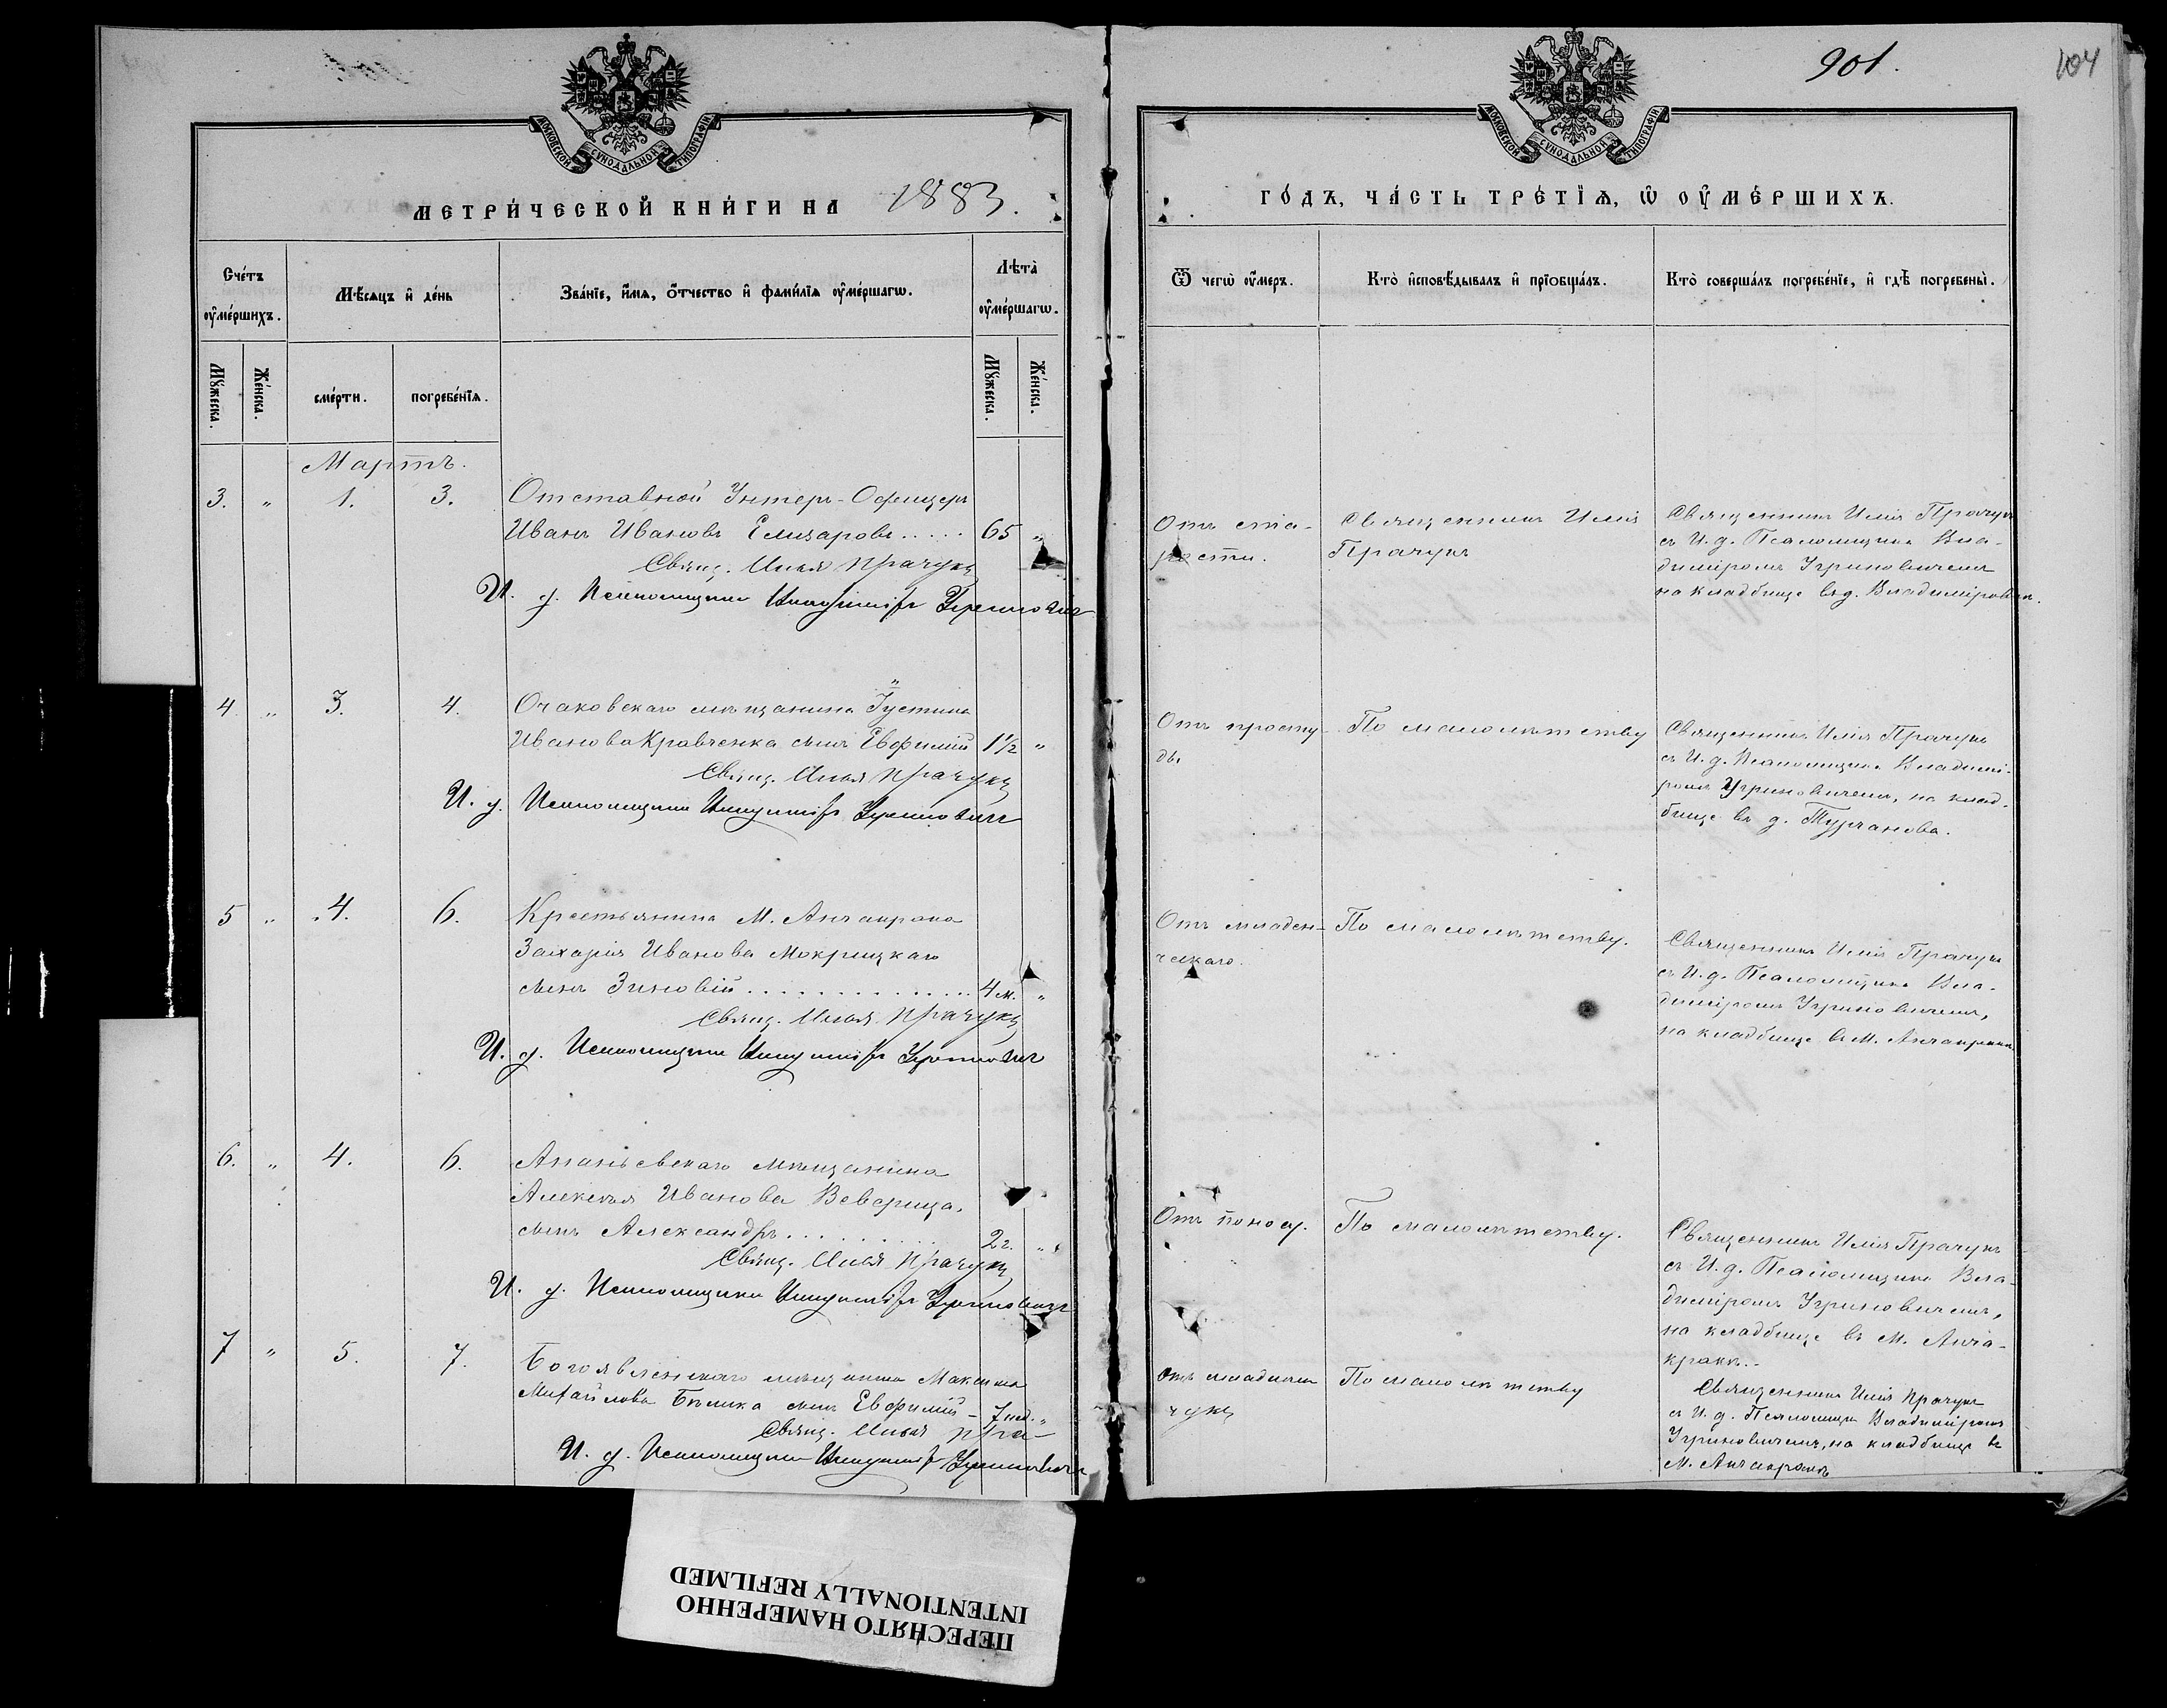 901.
104
МОСКОВСКОЙ СУНОДАЛЬНОЙ ТИПОГРАФІИ
МОСКОВСКОЙ СУНОДАЛЬНОЙ ТИПОГРАФІИ
МЕТРИ́ЧЕСКОЙ КНИ́ГИ НА 1883.
ГО́ДЪ, ЧА́СТЬ ТРЕ́ТЇѦ, Ѡ҆ ОУ҆МЕ́РШИХЪ.
Сче́тъ
оу҆ме́ршихъ.
Мѣ́сѧцъ и҆ де́нь
Зва́нїе, и҆́мѧ, ѻ҆́тчество и҆ фами́лїѧ оу҆ме́ршагѡ.
Лѣ́та
оу҆ме́ршагѡ.
Ѿ чегѡ̀ оу҆́меръ.
Кто̀ и҆сповѣ́дывалъ и҆ прїѡбща́лъ.
Кто̀ соверша́лъ погребе́нїе, и҆ гдѣ̀ погребены̀.
Мꙋ́жеска.
Же́нска.
сме́рти.
погребе́нїѧ.
Мꙋ́жеска.
Же́нска.
Мартъ.
3. " 1. 3. Отставной Унтеръ-Офицеръ
Иванъ Ивановъ Елизаровъ..... 65 "
Свящ. Илья Прачукъ
И. д. Псаломщика Владиміръ Угриновичъ
Отъ ста-
рости.
Священникъ Илія
Прачукъ
Священникъ Илія Прачукъ
съ И. д. Псаломщика Вла-
диміромъ Угриновичемъ
на кладбище въ д. Владиміровка.
4 " 3. 4. Очаковскаго мѣщанина Іустина
Иванова Кравченка сынъ Евфимій 1½ "
Свящ. Илья Прачукъ
И. д. Псаломщика Владиміръ Угриновичъ
Отъ просту-
ды
По малолѣтству
Священникъ Илія Прачукъ
съ И. д. Псаломщика Владимі-
ромъ Угриновичемъ, на клад-
бище въ д. Турчанова.
5 " 4. 6. Крестьянина М. Анчакрака
Захарія Иванова Мокрицкаго
сынъ Зиновій.............. 4 м. "
Свящ. Илья Прачукъ
И. д. Псаломщика Владиміръ Угриновичъ
Отъ младен-
ческаго.
По малолѣтству.
Священникъ Илія Прачукъ
съ И. д. Псаломщика Вла-
диміромъ Угриновичемъ,
на кладбище въ М. Анчакракъ.
6. " 4. 6. Ананьевскаго мѣщанина
Алексѣя Иванова Веверица,
сынъ Александръ.......... 2 г. "
Свящ. Илья Прачукъ
И. д. Псаломщика Владиміръ Угриновичъ
Отъ поносу.
По малолѣтству.
Священникъ Илія Прачукъ
съ И. д. Псаломщика Вла-
диміромъ Угриновичемъ,
на кладбище въ М. Анча-
кракъ.-
7 " 5. 7. Богоявленскаго мѣщанина Максима
Михайлова Бѣлика сынъ Евфимій - 7 нед. "
Свящ. Илья Пра-
чукъ
И. д. Псаломщика Владиміръ Угриновичъ
Отъ
По малолѣтству
Священникъ Илія Прачукъ
съ И. д. Псаломщика Владиміромъ
Угриновичемъ, на кладбище въ
М. Анчакракъ
ПЕРЕСНЯТО НАМЕРЕННО
INTENTIONALLY REFILMED